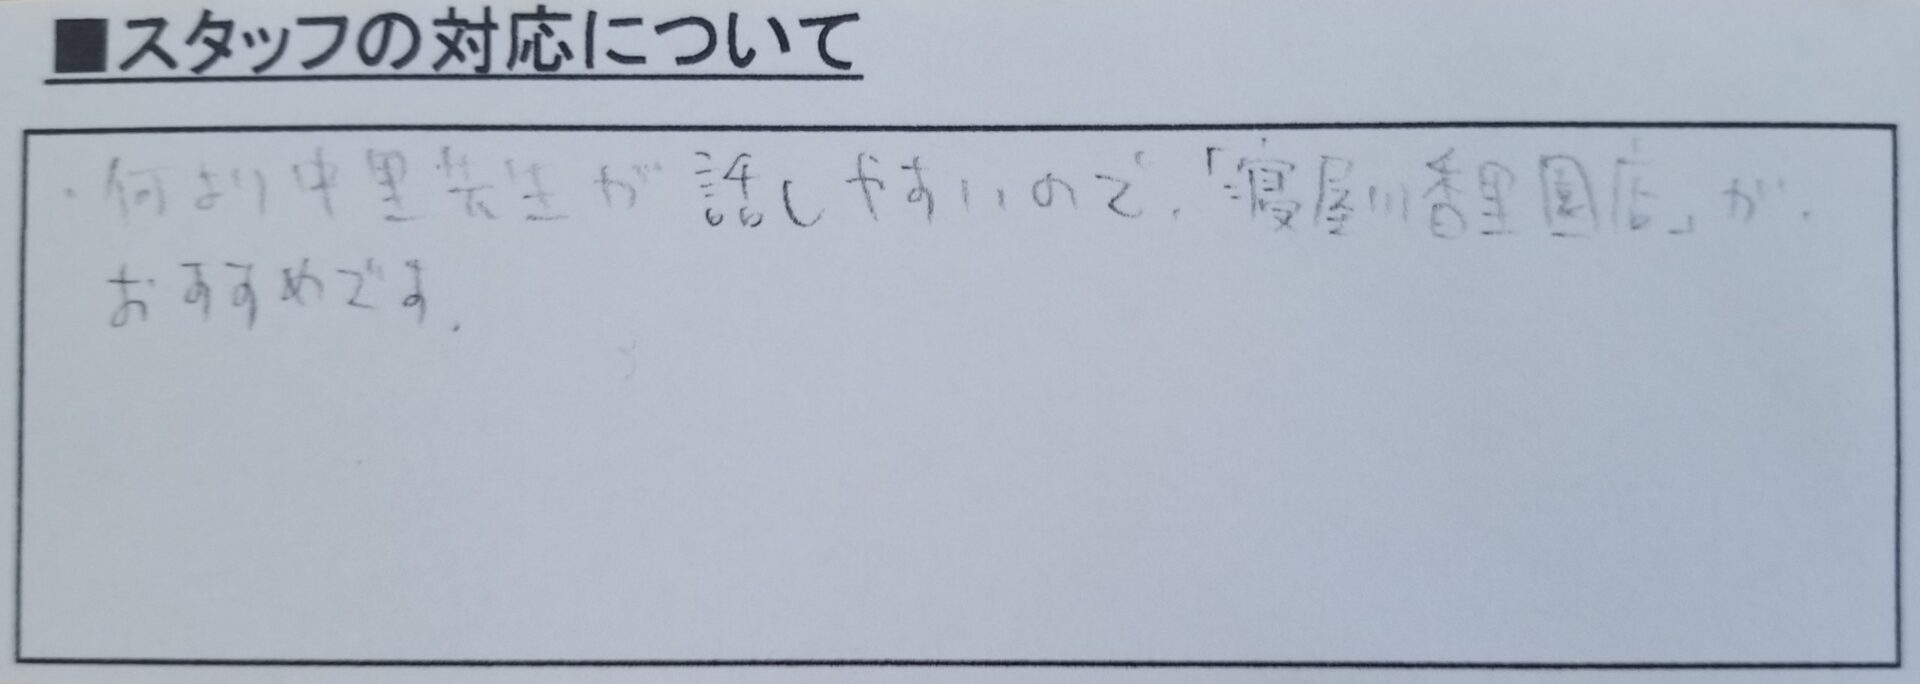 ■スタッフの対応について
・何より中里先生が話しやすいので、「寝屋川香里園店」が、
おすすめです。